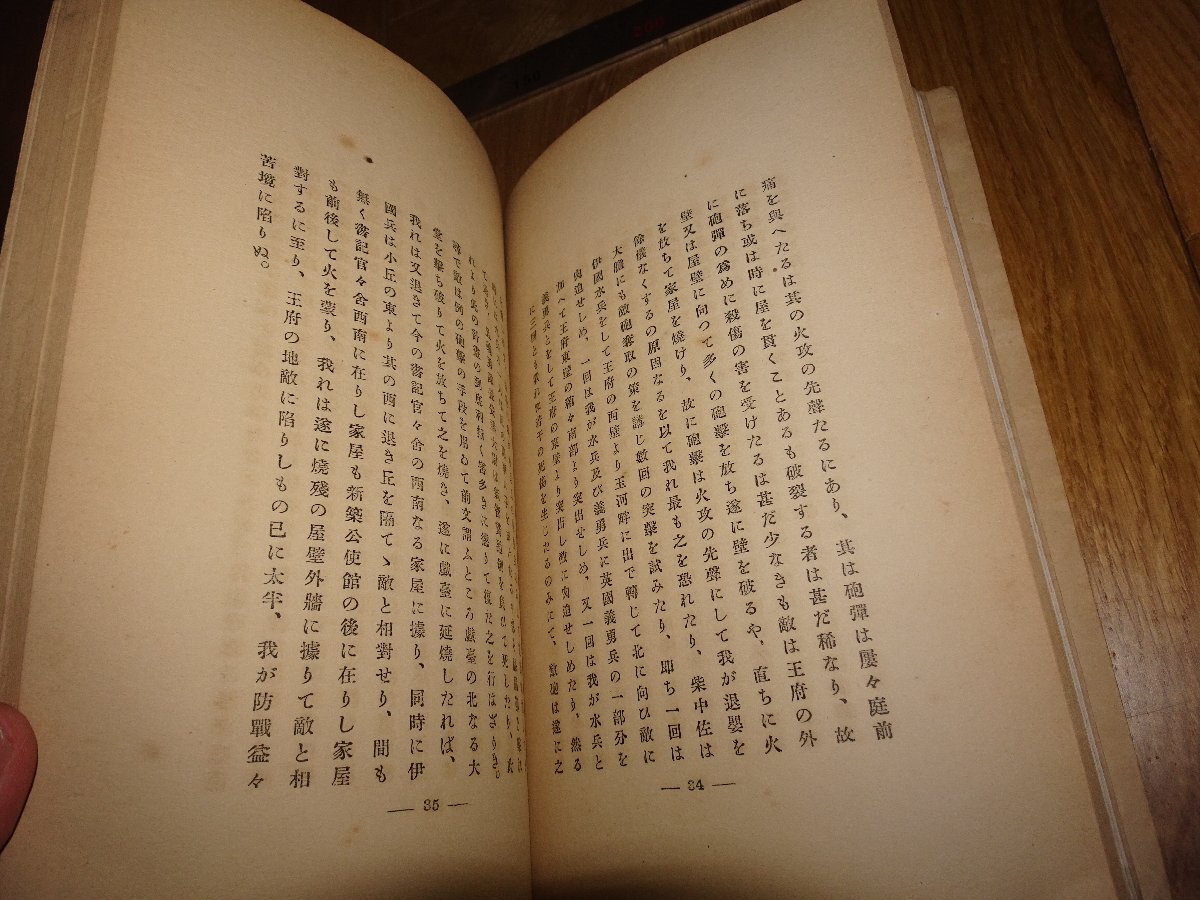 痛を與へたるは其の火攻の先聲たるにあり、其は砲彈は屢々庭前
に落ち或は時に屋を貫くことあるも破裂する者は甚だ稀なり、故
に砲彈の爲めに殺傷の害を受けたるは甚だ少なきも敵は王府の外
壁又は屋壁に向つて多くの砲擊を放ち遂に壁を破るや、直ちに火
を放ちて家屋を燒けり、故に砲擊は火攻の先聲にして我が退嬰を
餘儀なくするの原因なるを以て我れ最も之を恐れたり、柴中佐は
大膽にも敵砲奪取の策を講じ數回の突擊を試みたり、卽ち一回は
伊國水兵をして王府の西壁より玉河畔に出で轉じて北に向ひ敵に
肉迫せしめ、一回は我が水兵及び義勇兵に英國義勇兵の一部分を
加へて王府東壁の稍々南部より突出せしめ、又一回は我が水兵と
義勇兵とをして王府の東壁より突出し敵に肉迫せしめたり、然る
に三回とも若干の死傷を生じたるのみにて、敵砲は遂に之
34
尋で敵は例の砲擊の手段を用ゐて前文謂ふところ戲臺の北なる大
堂を擊ち破りて火を放ちて之を燒き、遂に戲臺に延燒したれば、
我れは又退きて今の書記官々舍の西南なる家屋に據り、同時に伊
國兵は小丘の東より其の西に退き丘を隔てゝ敵と相對せり、間も
無く書記官々舍西南に在りし家屋も新築公使館の後に在りし家屋
も前後して火を蒙り、我れは遂に燒殘の屋壁外牆に據りて敵と相
對するに至り、王府の地敵に陷りしもの已に太半、我が防戰益々
苦境に陷りぬ。
35
150
200